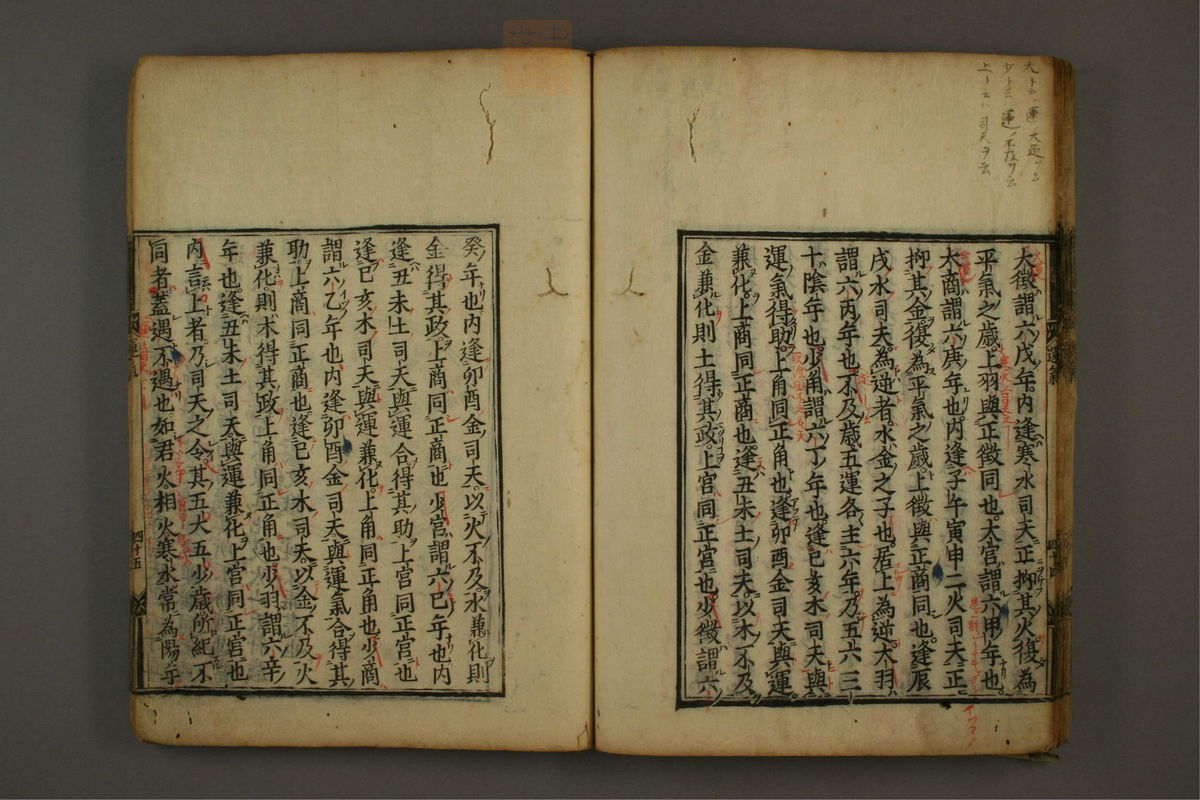 大徵謂六戊年内逢寒水司天正抑其火復為
平氣之歲上羽與正徵同也大宮謂六甲年也
太商謂六庚年也内逢子午寅申二火司天正
抑其金復為平氣之歲上徵與正商同也逢辰
戌水司天為逆者水金之子也居上為逆太羽
謂六丙年也不及歲五運各主六年乃五六三
十陰年也少角謂六丁年也逢巳亥木司天與
運氣得助上角同正角也逢卯酉金司天與運
兼化上商同正商也逢丑未土司天以木不及
金兼化則土得其政上宮同正宮也少徵謂六
癸年也内逢卯酉金司天以火不及水兼化則
金得其政上商同正商也少宮謂六己年也内
逢丑未土司天與運合得其助上宮同正宮也
逢巳亥木司天與運兼化上角同正角也少商
謂六乙年也内逢卯酉金司天與運氣合得其
助上商同正商也逢巳亥木司天以金不及火
兼化則木得其政上角同正角也少羽謂六辛
年也逢丑未土司天與運兼化上宮同正宮也
内言上者乃司天之令其五太五少歲所紀不
同者蓋遇不遇也如君火相火寒水常為陽年
四十五